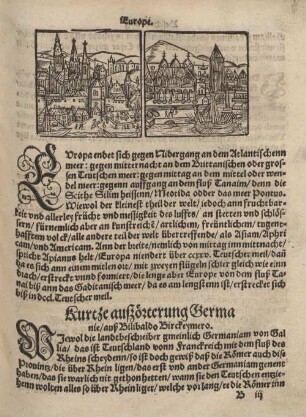 Europe.
EVropa endet sich gegen Nidergang an dem Atlantischenn
meer: gegen mitternacht an dem Brittanischen oder gros-
sen Teutschen meer: gegen mittag an dem mittel oder wen-
del meer: gegenn auffgang an dem fluß Tanaim/ denn die
Scithe Silim heissen/ Meotidis oder das meer Pontus.
Wiewol der kleinest theil der welt/ iedoch ann fruchtbar-
keit vnd allerley frücht vnd messigkeit des luffts/ an stetten vnd schlös-
sern/ fürnemlich aber an kunstreich/ artlichem/ freüntlichem/ tugen-
hafftem volck/ alle andre teil der welt übertreffende/ als Asiam/ Aphri-
cam/ vnd Americam. Ann der breite/ nemlich von mittag inn mittnacht/
sprichts Apianus helt/ Europa niendert über ccxxv. Teutscher meil/ daß
ich es also an einem helt/ die zwo meer stügleln scher gleich wie einn
drach/ erstreckt vnnd formiert/ die lenge aber Europe von dem fluß Ta-
nai biß ann das Gaditanisch meer/ da es am lengsten ist/ erstrecket sich
biß in dccl. Teutscher meil.
Kurtze außörterung Germa
nie/ auß Bilibaldo Birckeymero.
WJewol die landtbeschreiber gmeinlich Germaniam von Gal
lia/ das ist Teutschland vonn Franckreich mit dem fluß des
Rheins scheyden/ so ist doch gewiß daß die Römer auch dise
Prouintz/ die über Rhein ligen/ das erst vnd ander Germaniam genent
haben/ das sie warlich nit gethon hetten/ wann sie den Teutschen entzie-
henn wolten alles so über Rhein liget/ welche vor lang/ ee die Römer inn
B iij